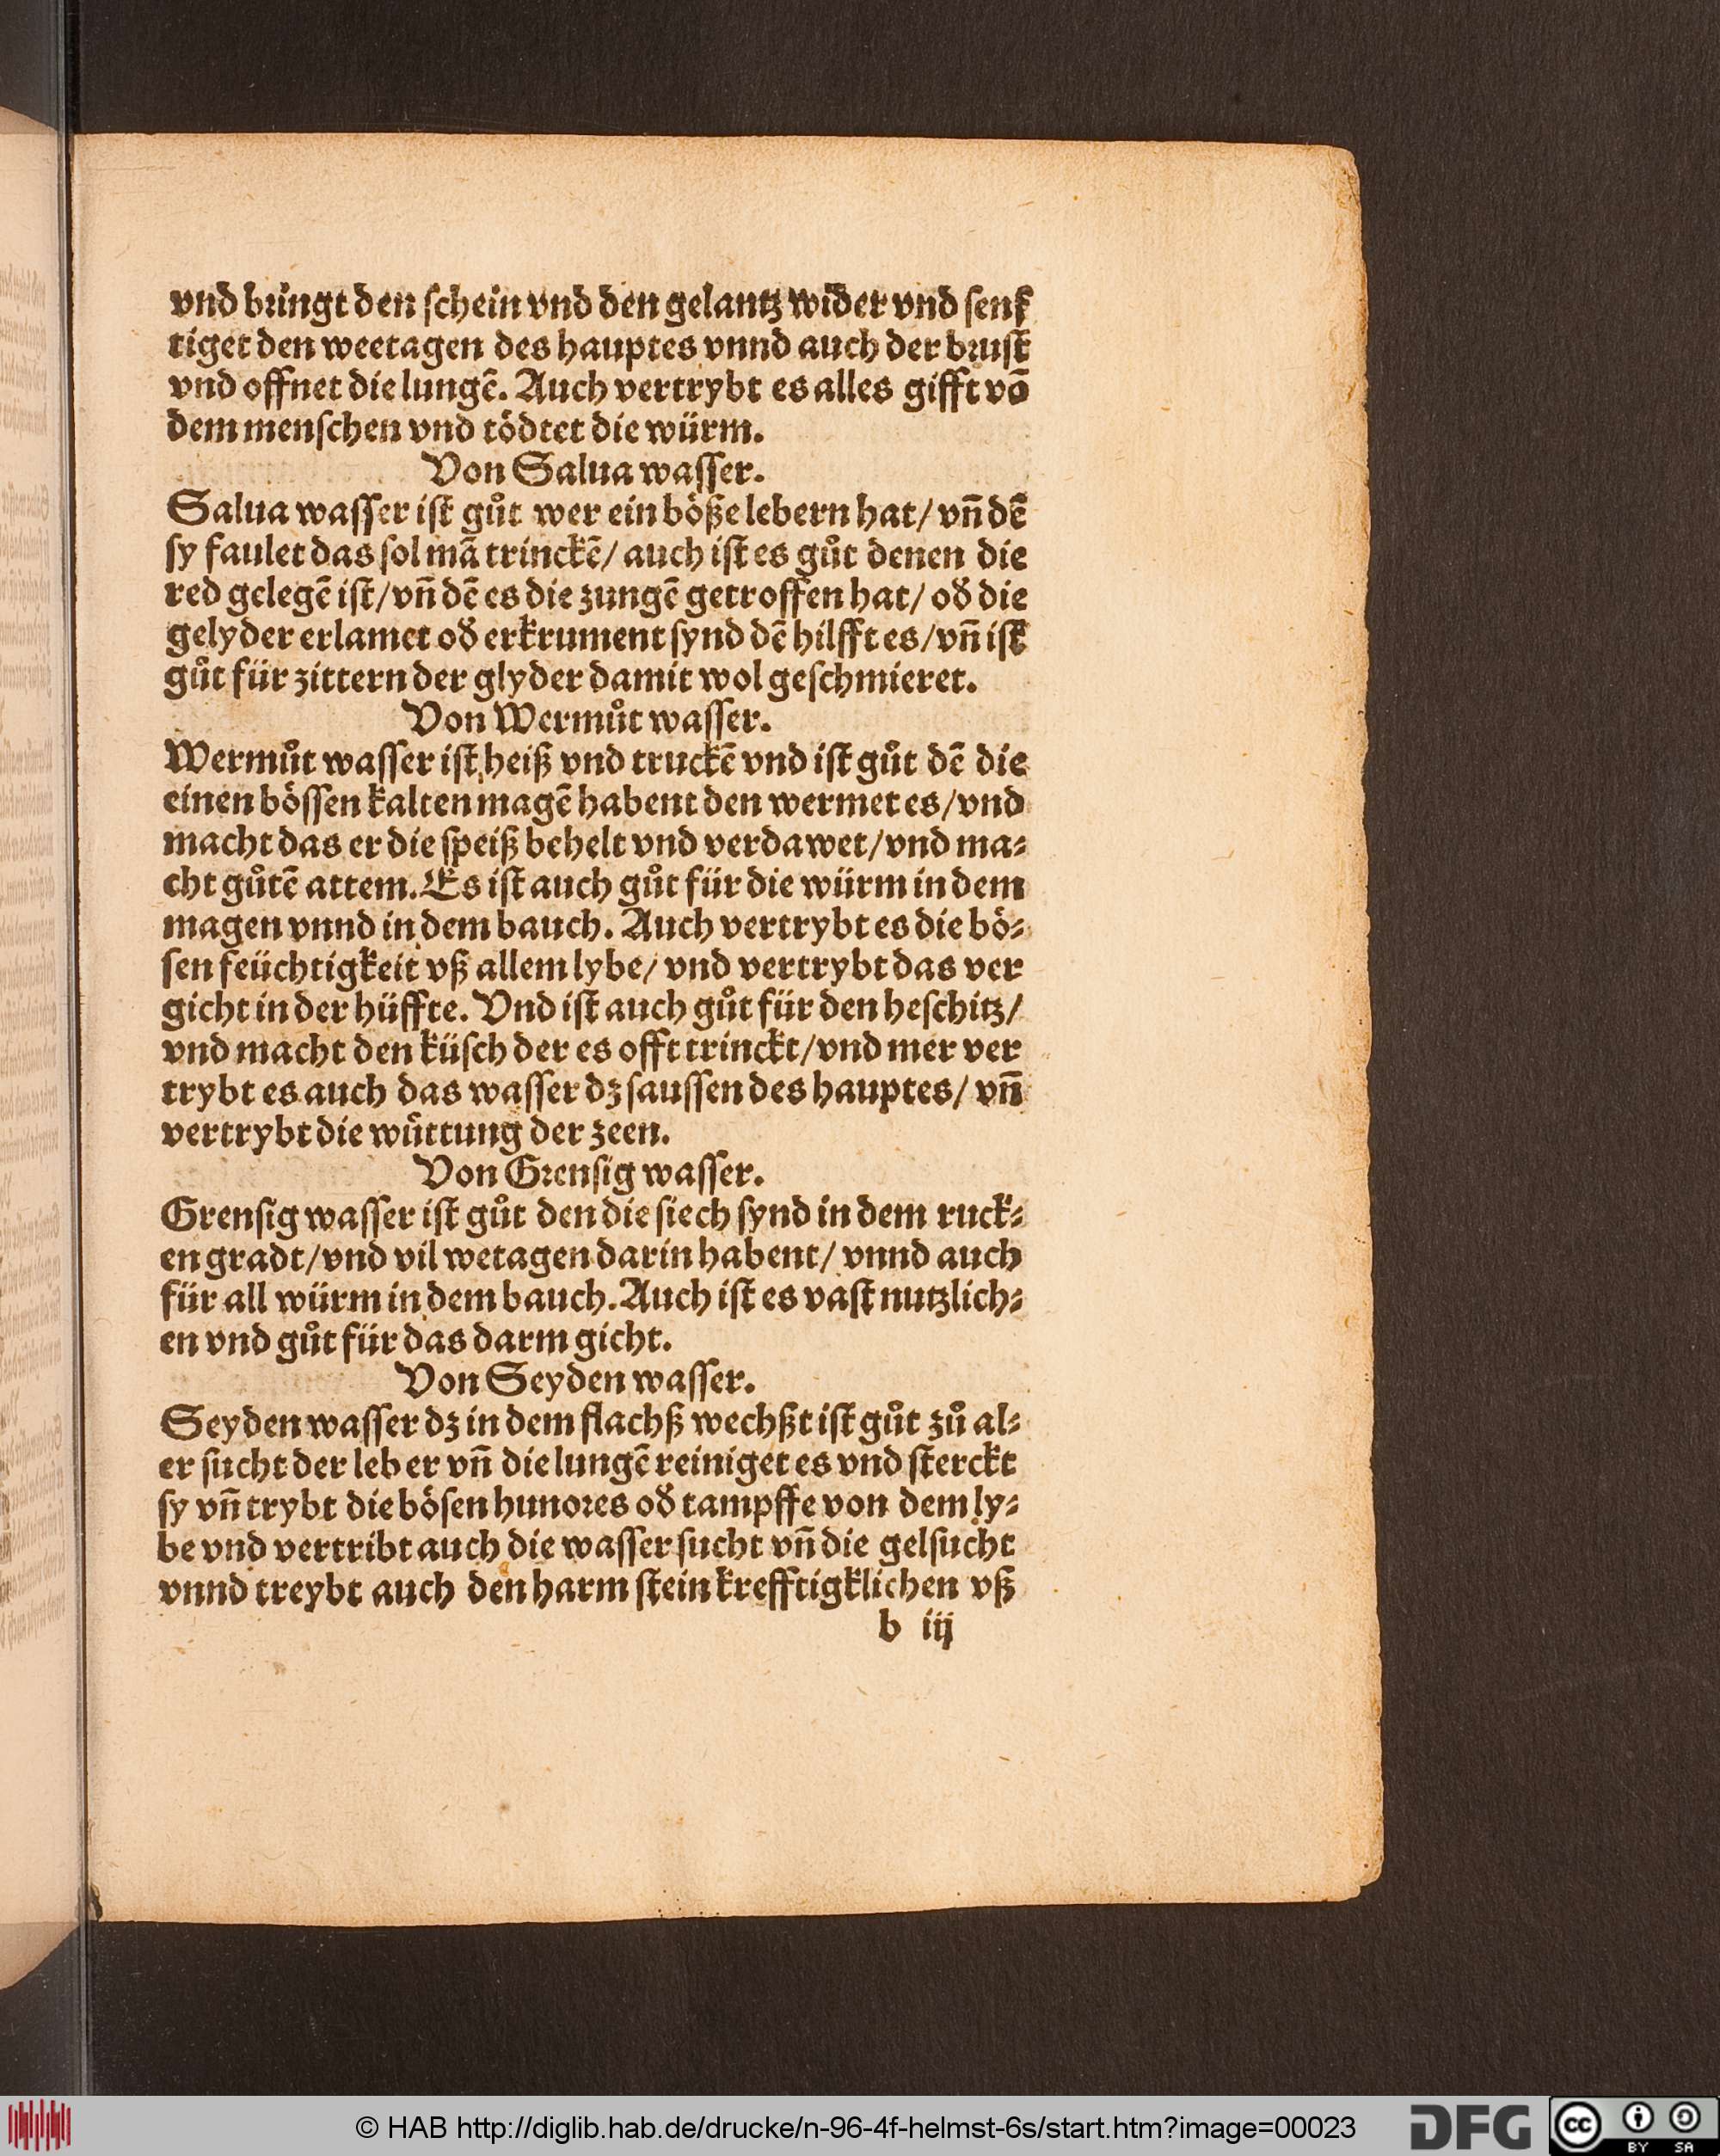 vnd bringt den ſchein vnd den gelantz wider vnd ſenf
tiget den weetagen des hauptes vnnd auch der bruſt
vnd offnet die lungē. Auch vertrybt es alles gifft vō
dem menſchen vnd tödtet die würm.
Von Salua waſſer.
Salua waſſer iſt gůt wer ein böße lebern hat/ vn̄ dē
ſy faulet das ſol mā trinckē/ auch iſt es gůt denen die
red gelegē iſt/vn̄ dē es die zungē getroffen hat/ od̕ die
gelyder erlamet od̕ erkrument ſynd dē hilfft es/vn̄ iſt
gůt für zittern der glyder damit wol geſchmieret.
Von Wermůt waſſer.
Wermůt waſſer iſt heiß vnd truckē vnd iſt gůt dē die
einen böſſen kalten magē habent den wermet es/vnd
macht das er die ſpeiß behelt vnd verdawet/vnd ma⸗
cht gůtē attem. Es iſt auch gůt für die würm in dem
magen vnnd in dem bauch. Auch vertrybt es die bö⸗
ſen feüchtigkeit vß allem lybe/ vnd vertrybt das ver
gicht in der hüffte. Vnd iſt auch gůt für den heſchitz/
vnd macht den küſch der es offt trinckt/vnd mer ver
trybt es auch das waſſer dz ſauſſen des hauptes/ vn̄
vertrybt die wüttung der zeen.
Von Grenſig waſſer.
Grenſig waſſer iſt gůt den die ſiech ſynd in dem ruck⸗
en gradt/vnd vil wetagen darin habent/ vnnd auch
für all würm in dem bauch. Auch iſt es vaſt nutzlich⸗
en vnd gůt für das darm gicht.
Von Seyden waſſer.
Seyden waſſer dz in dem flachß wechßt iſt gůt zů al⸗
er ſucht der leber vn̄ die lungē reiniget es vnd ſterckt
ſy vn̄ trybt die böſen hunores od̕ tampffe von dem ly⸗
be vnd vertribt auch die waſſer ſucht vn̄ die gelſucht
vnnd treybt auch den harm ſtein krefftigklichen vß
b iij
© HAB http://diglib.hab.de/drucke/n-96-4f-helmst-6s/start.htm?image=00023
DFG
cc BY SA